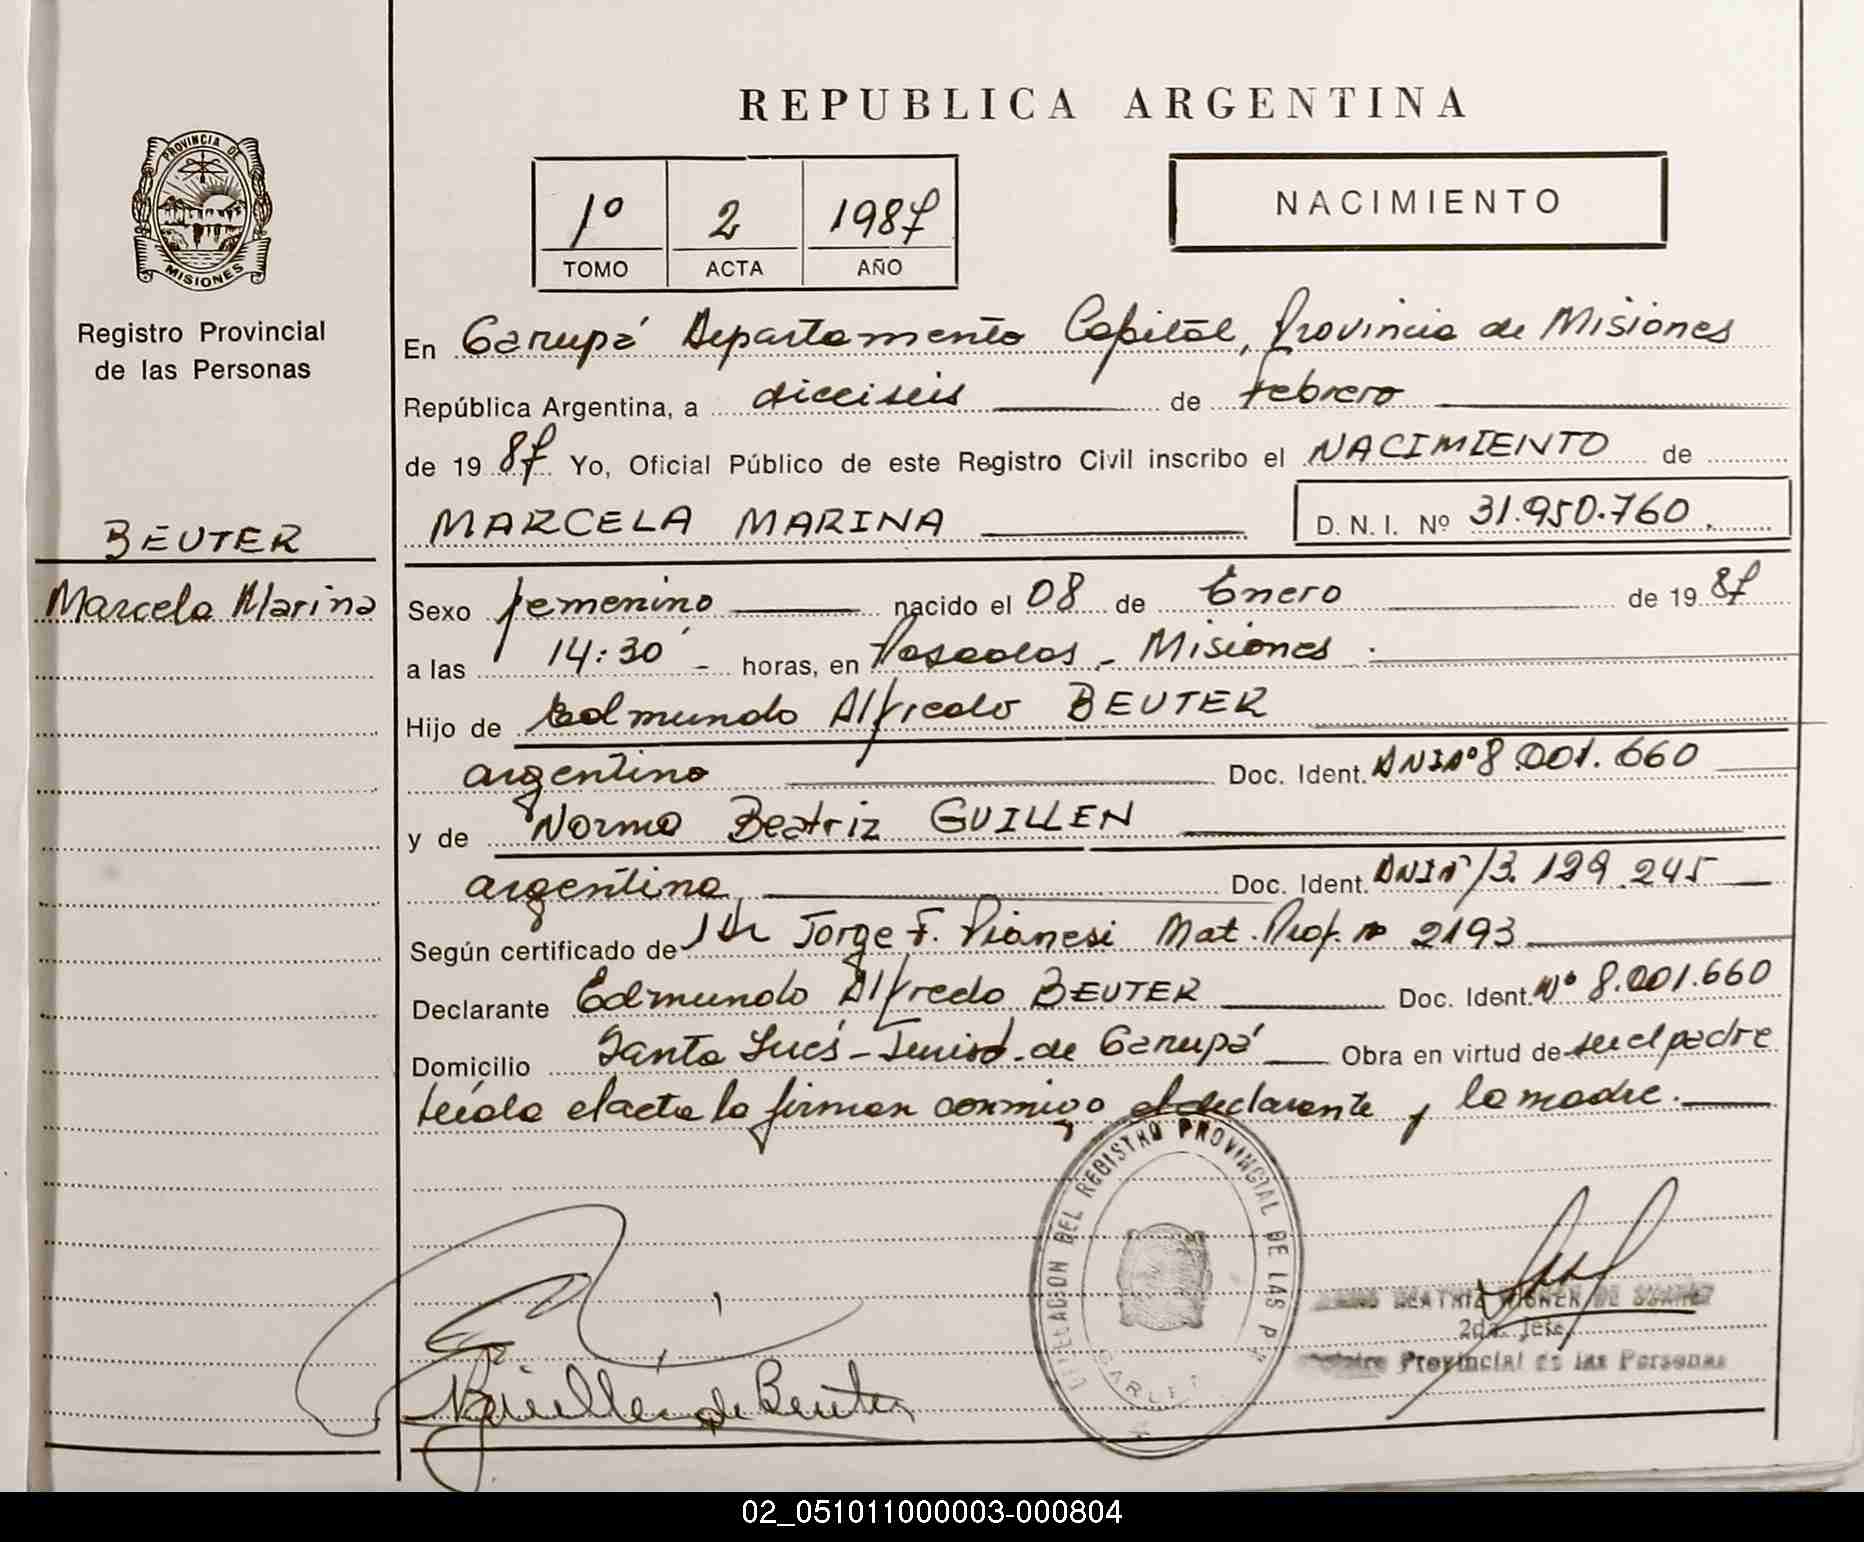 REPUBLICA ARGENTINA
PROVINCIA DE
MISIONES
Registro Provincial
de las Personas
1º 2 1987
TOMO ACTA AÑO
NACIMIENTO
En Garupá Departamento Capital, Provincia de Misiones
República Argentina, a dieciseis de febrero
de 1987 Yo, Oficial Público de este Registro Civil inscribo el NACIMIENTO de
MARCELA MARINA D. N. I. Nº 31.950.760
BEUTER
Marcela Marina
Sexo femenino nacido el 08 de Enero de 1987
a las 14:30 horas, en Posadas - Misiones
Hijo de Edmundo Alfredo BEUTER
argentino Doc. Ident. DNI Nº 8.001.660
y de Norma Beatriz GUILLEN
argentina Doc. Ident. DNI Nº 13.129.245
Según certificado de Jorge F. Pianesi Mat. Prof. nº 2193
Declarante Edmundo Alfredo BEUTER Doc. Ident. Nº 8.001.660
Domicilio Santa Inés - de Garupá Obra en virtud de ser el padre
leída el acta la firman conmigo el declarante y la madre.
DEL REGISTRO PROVINCIAL DE LAS P
BEATRIZ DE
2da. Jefe
Provincial de las Personas
de Beuter
02_051011000003-000804